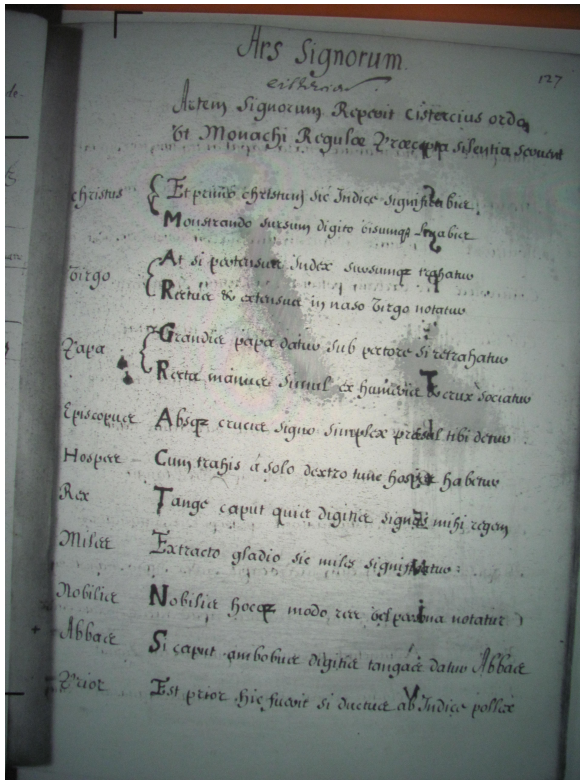 Ars Signorum
127
Artem Signorum Reperit Cistercius ordo
Ut Monachi Regulae Præcepta silentia servent
Christus
Et primo christum sic Indice significabis
Monstrando sursum digito
At si protensus Index sursumq trahatur
Virgo
Rectus & extensus in naso Virgo notatur
Grandis papa datur sub pectore si retrahatur
Papa
Recta manus simul ex humeris & crux sociatur
Episcopus Absq crucis signo simplex præsul tibi detur
Hospes Cum trahis a solo dextro tunc hospes habetur
Rex Tange caput quis digitis signas mihi regem
Miles Extracto gladio sic miles significatur
Nobilis Nobilis hocq modo notatur
Abbas Si caput ambobus digitis tangas datur Abbas
Prior Est prior hic fuerit si ductus ab Indice pollex